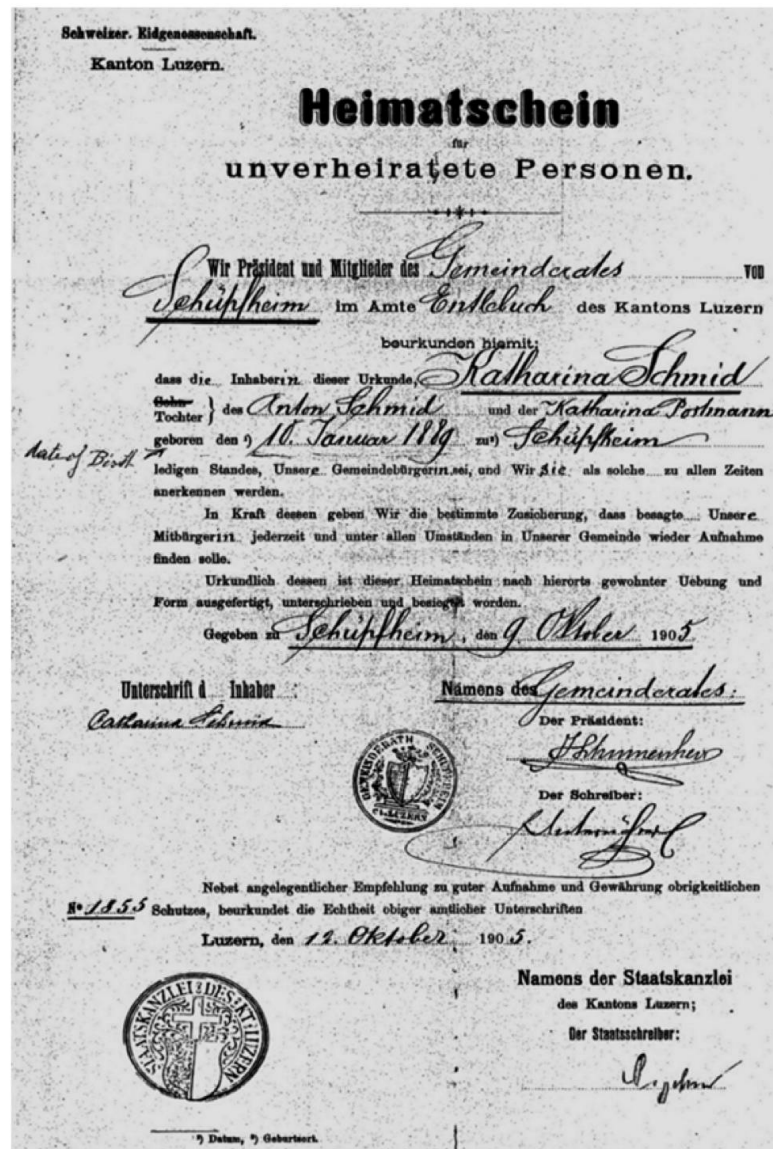 Schweizer. Eidgenossenschaft.
Kanton Luzern.
Heimatschein
für
unverheiratete Personen.
Wir Präsident und Mitglieder des Gemeinderates von
Schüpfheim im Amte Entlebuch des Kantons Luzern
beurkunden hiemit:
dass die Inhaberin dieser Urkunde, Katharina Schmid
Sohn
Tochter } des Anton Schmid und der Katharina Portmann
geboren den ¹) 10. Januar 1889 zu ²) Schüpfheim
date of Birth
ledigen Standes, Unsere Gemeindebürgerin sei, und Wir sie als solche zu allen Zeiten
anerkennen werden.
In Kraft dessen geben Wir die bestimmte Zusicherung, dass besagte Unsere
Mitbürgerin jederzeit und unter allen Umständen in Unserer Gemeinde wieder Aufnahme
finden solle.
Urkundlich dessen ist dieser Heimatschein nach hierorts gewohnter Uebung und
Form ausgefertigt, unterschrieben und besiegelt worden.
Gegeben zu Schüpfheim, den 9. Oktober 1905
Unterschrift d Inhaber :
Catharina Schmid
Namens des Gemeinderates:
Der Präsident:
GEMEINDERATH SCHÜPFHEIM
Ct. LUZERN
Der Schreiber:
Nebst angelegentlicher Empfehlung zu guter Aufnahme und Gewährung obrigkeitlichen
No 1855 Schutzes, beurkundet die Echtheit obiger amtlicher Unterschriften
Luzern, den 12. Oktober 1905.
STAATSKANZLEI DES KT. LUZERN
Namens der Staatskanzlei
des Kantons Luzern;
Der Staatsschreiber:
¹) Datum, ²) Geburtsort.